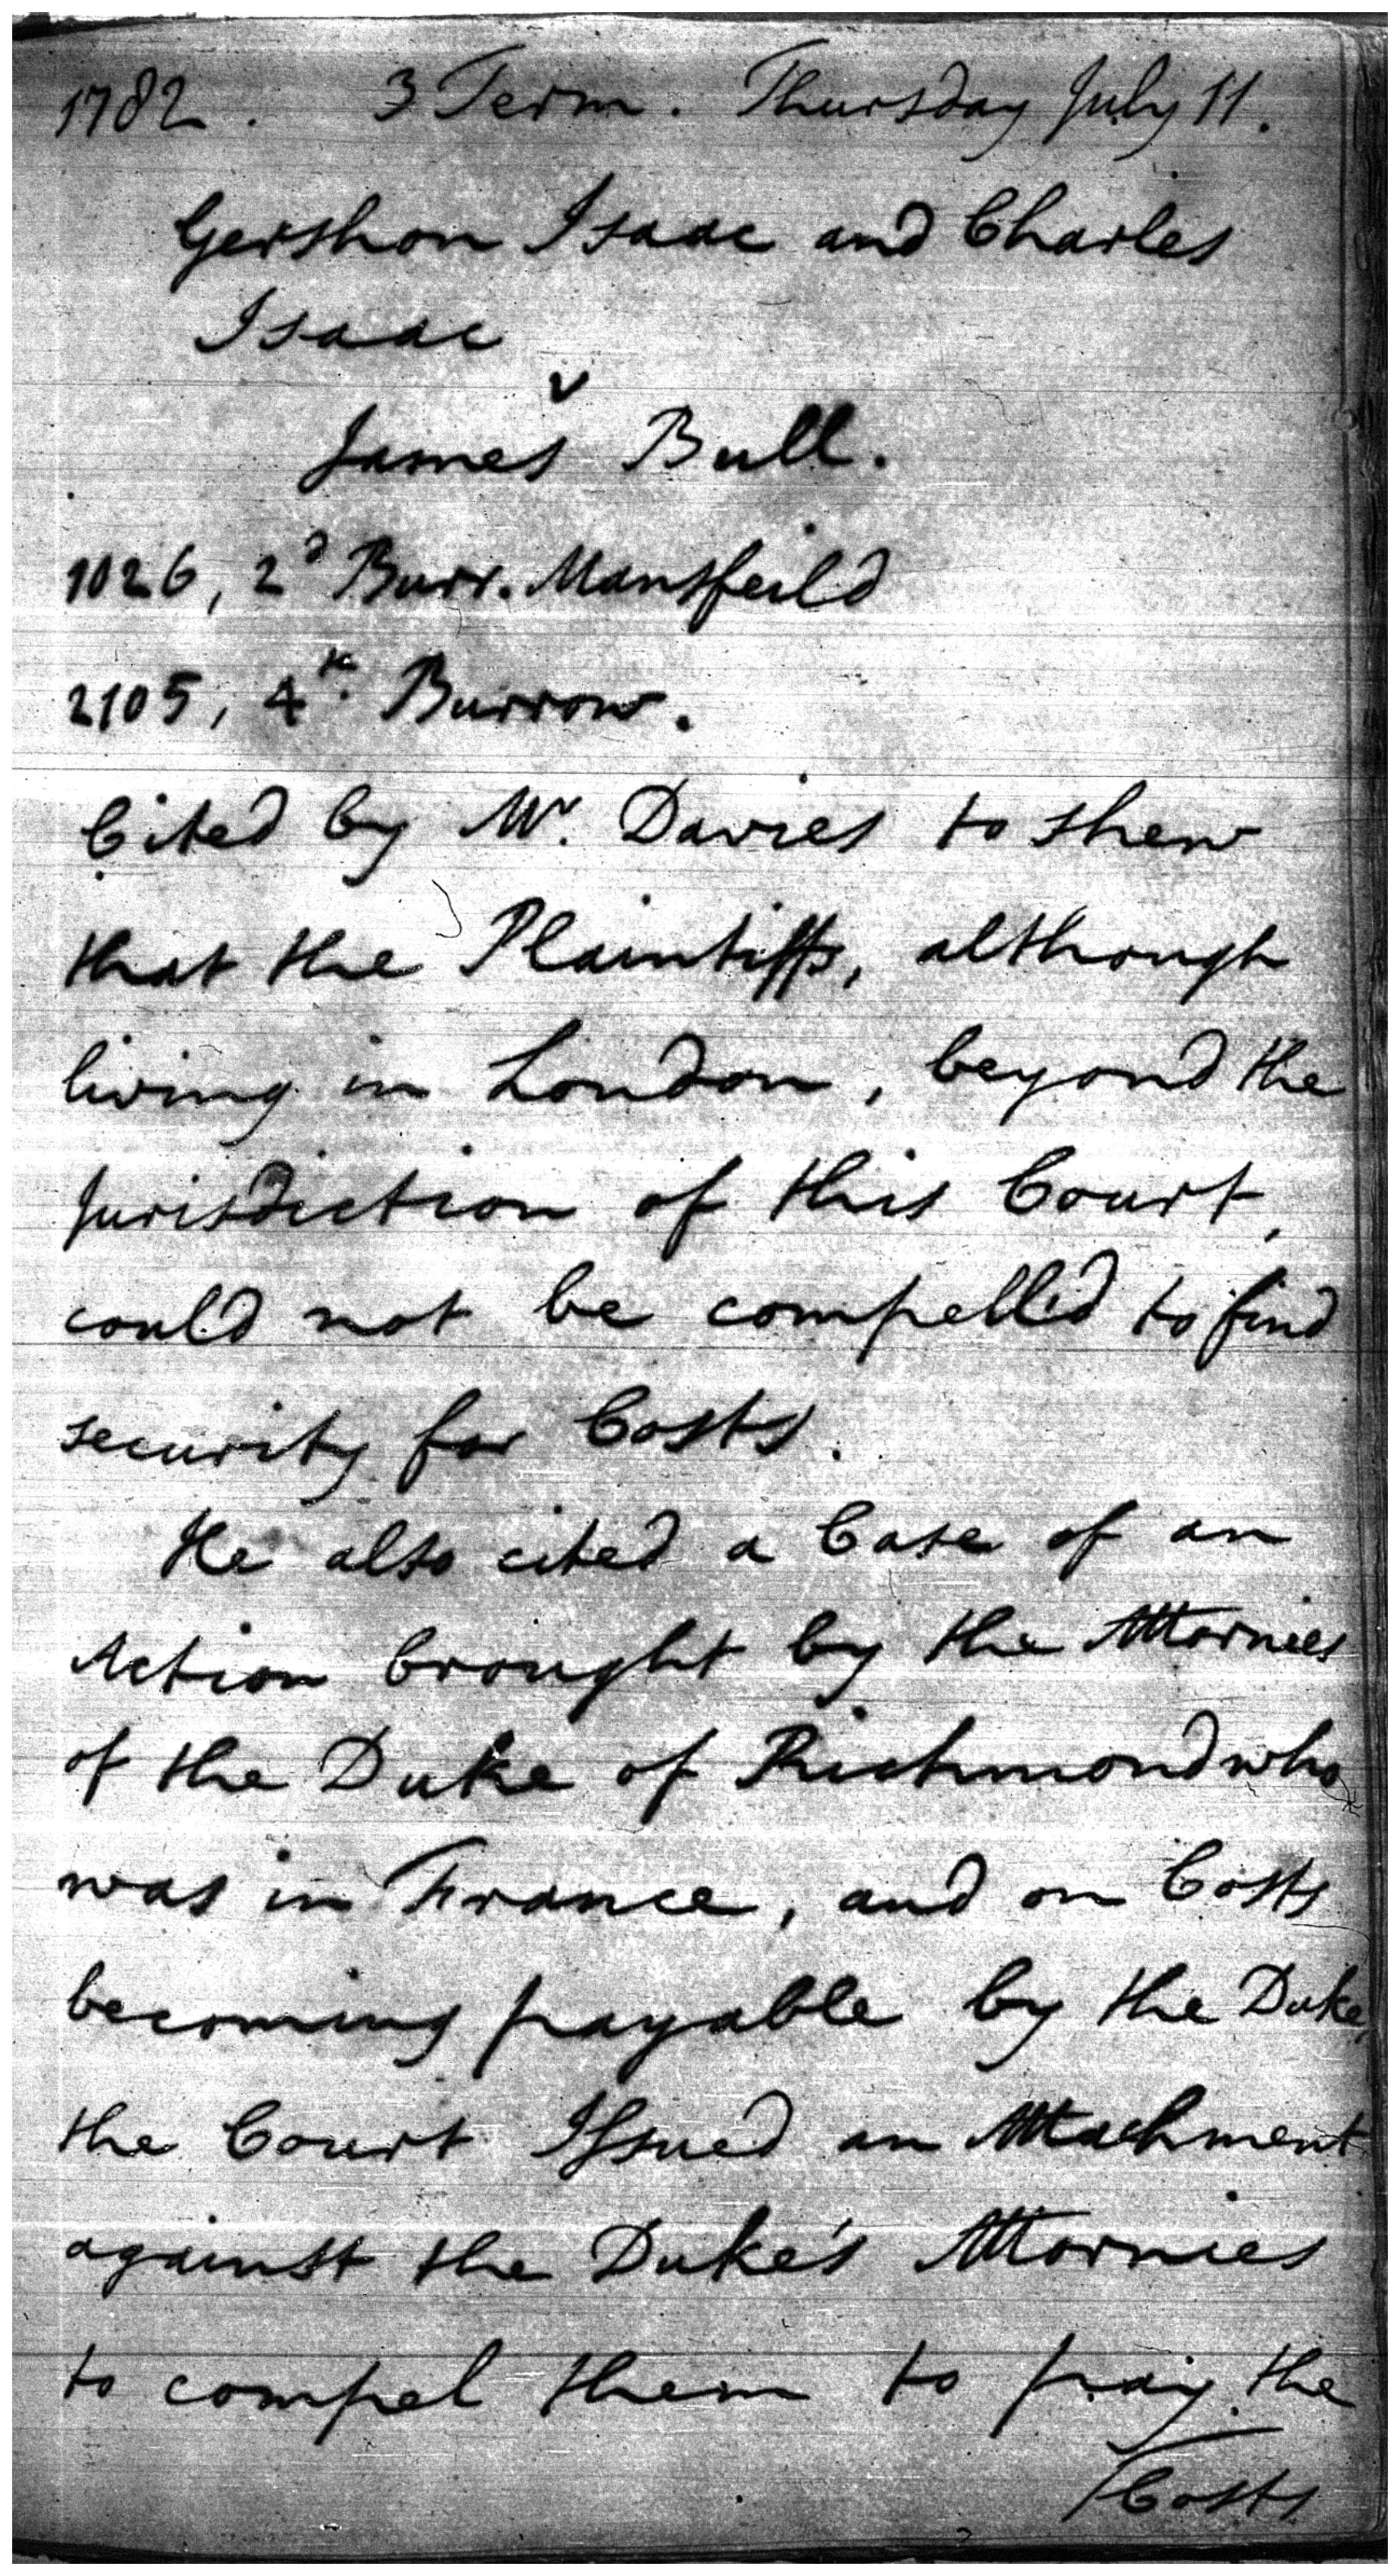 1782. 3 Term. Thursday July 11.
Gershon Isaac and Charles
Isaac
v
James Bull.
1026, 2d Burr. Mansfeild
2105, 4th Burrow.
Cited by Mr. Davies to shew
that the Plaintiffs, although
living in London, beyond the
Jurisdiction of this Court,
could not be compelled to find
security for Costs.
He also cited a Case of an
Action brought by the Attornies
of the Duke of Richmond who
was in France, and on Costs
becoming payable by the Duke,
the Court Issued an Attachment
against the Duke's Attornies
to compel them to pay the
Costs